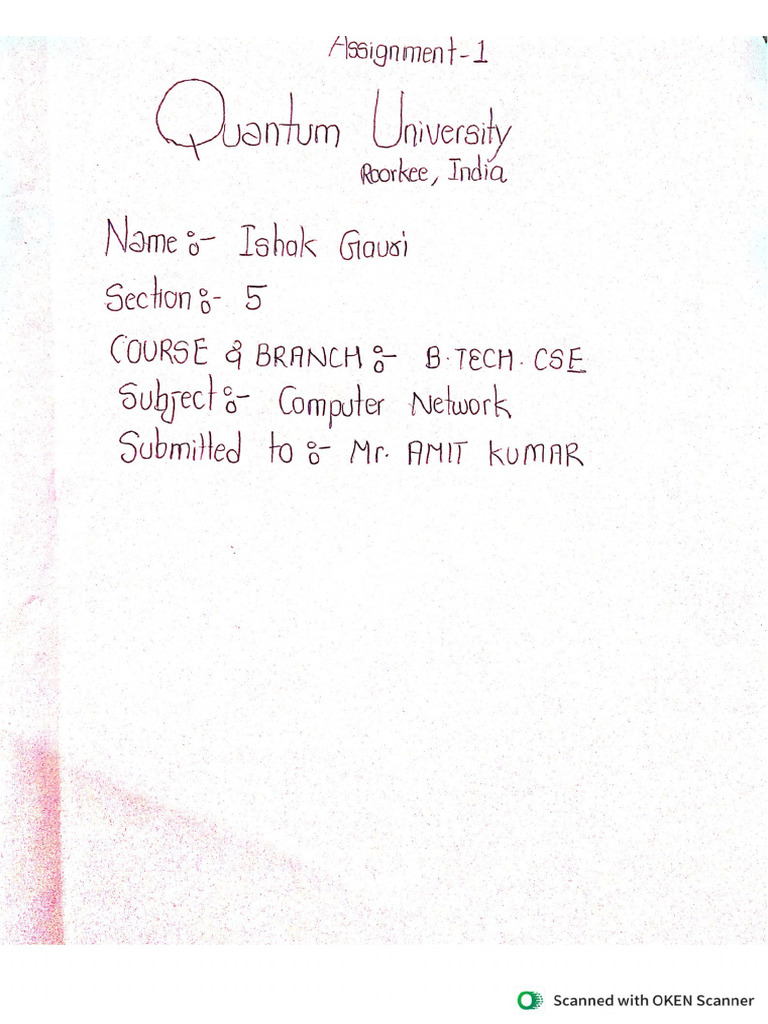 Assignment-1
Quantum University
Roorkee, India
Name :- Ishak Gauri
Section :- 5
COURSE & BRANCH :- B.TECH. CSE
Subject :- Computer Network
Submitted to :- Mr. AMIT KUMAR
Scanned with OKEN Scanner